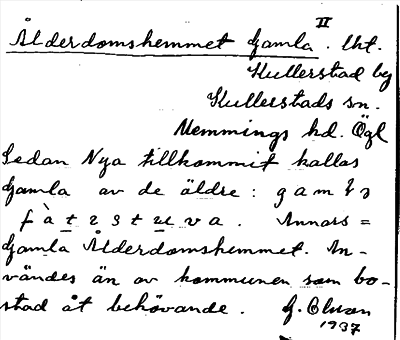 II
Ålderdomshemmet Gamla. Uht.
Kullerstad by
Kullerstads sn.
Memmings hd. Ögl
Sedan Nya tillkommit kallas
Gamla av de äldre: gam
fàtzstuva. Annars =
Gamla Ålderdomshemmet. An-
vändes än av kommunen som bo-
stad åt behövande. G. Olsson
1937